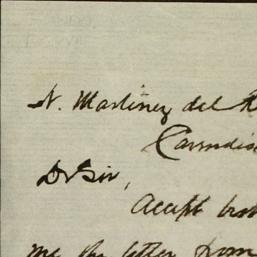 N. Martinez del
Dr Sir,
Accept
me the letter from